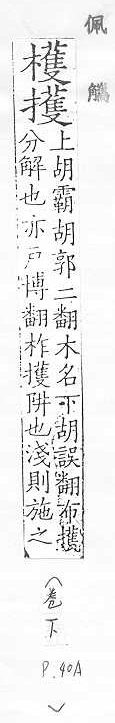 佩觿
檴擭
上胡霸胡郭二翻木名下胡誤翻布擭
分解也亦戶博翻柞擭阱也淺則施之
(卷下
P.40A
)